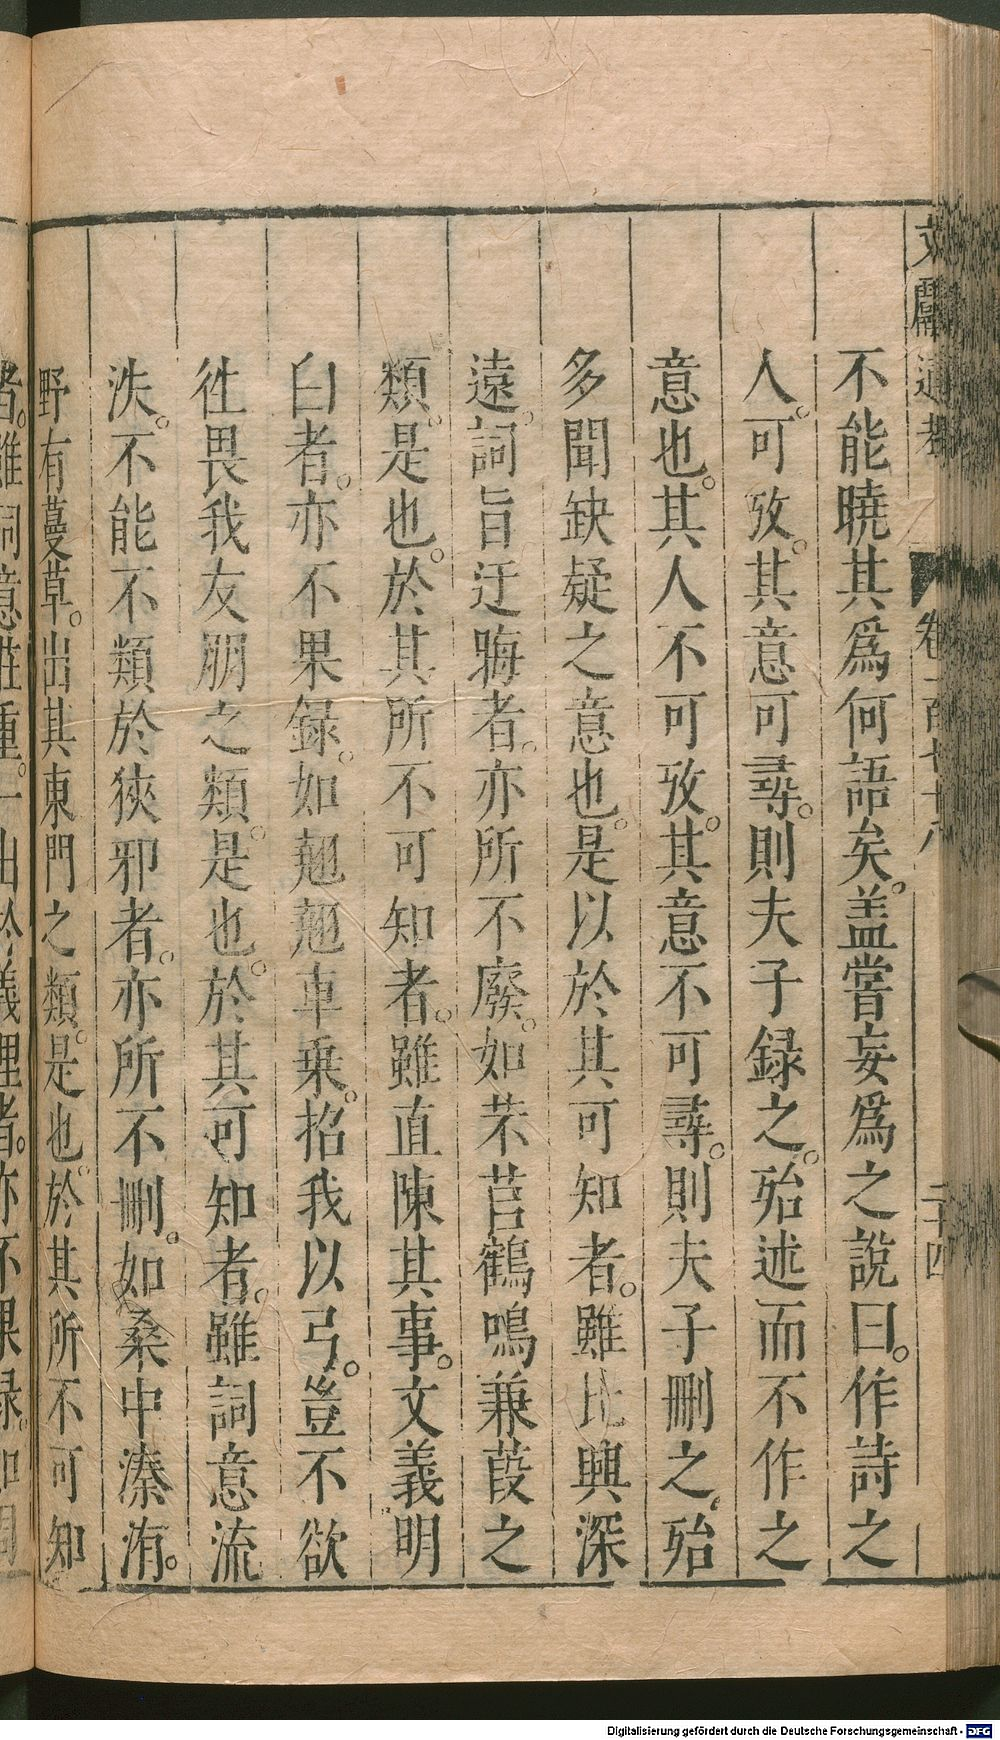 文獻通考 卷一百七十八 二十四
不能曉其爲何語矣。盖嘗妄爲之說曰。作詩之
人。可攷。其意可尋。則夫子録之。殆述而不作之
意也。其人不可攷。其意不可尋。則夫子刪之。殆
多聞缺疑之意也。是以於其可知者。雖比興深
遠。詞旨迂晦者。亦所不廢。如芣苢鶴鳴蒹葭之
類。是也。於其所不可知者。雖直陳其事。文義明
白者。亦不果録。如翹翹車乗。招我以弓。豈不欲
徃畏我友朋之類。是也。於其可知者。雖詞意流
泆。不能不類於狹邪者。亦所不刪。如桑中溱洧。
野有蔓草。出其東門之類。是也。於其所不可知
者。雖詞意莊重。一出於義理者。亦不果録。如周
Digitalisierung gefördert durch die Deutsche Forschungsgemeinschaft - DFG